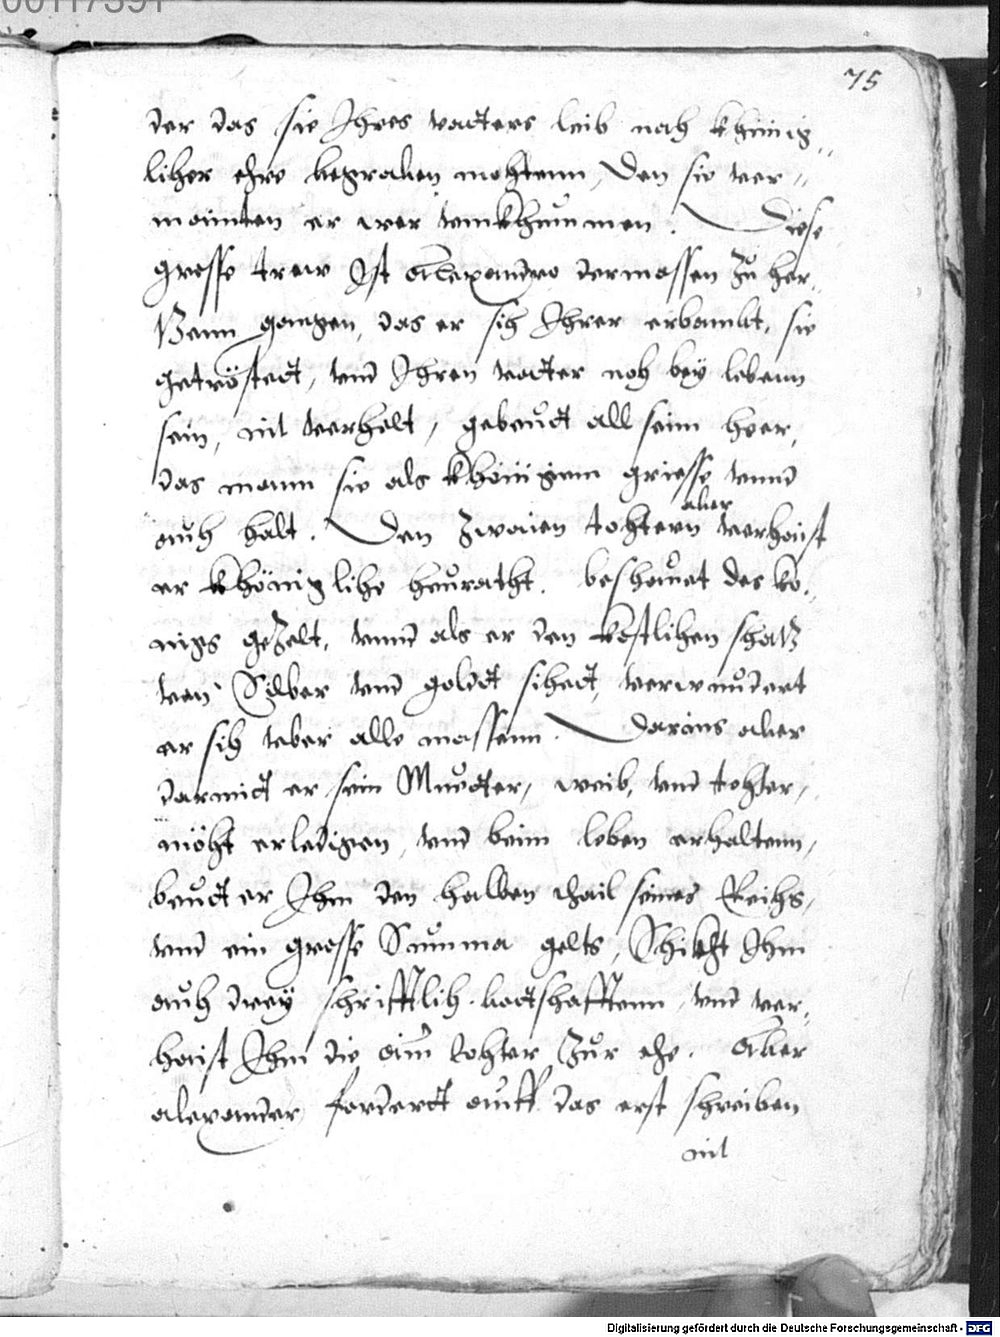 00117391
75
der das sie Ihres vatters leib nach khünig,,
licher ehre begraben möchtenn, Den sie ver,,
mainten er wer vmbkhummen. Diese
grosse trew Ist Alexandro dermassen zů her,,
tzenn gangen, das er sich Ihrer erbarmbt, sie
getröstedt, vnd Ihren vatter noch bey lebenn
sein, nit verhelt, gebeudt all seim heer,
das mann sie als khönigenn griesse vnnd
auch halt. Den zwaien tochtern aber verhaist
er khönigliche heuratht. beschauet des kö,,
nigs gezelt, vnnd als er den kostlichen schatz
von Silber vnd goldt sihedt, verwundert
er sich veber alle massenn. Darius aber
darmidt er sein Muedter, weib, vnd tochter,
möcht erledigen, vnd beim leben erhaltenn,
beudt er Ihm den halben thail seines Reichs,
vnd ein grosse Summa gelts, Schickht Ihm
auch drey schrifftlich bodtschafftenn, vnd ver,
haist Ihm die ain tochter zur ehe. Aber
alexander fordert auff das erst schreiben
nit
Digitalisierung gefördert durch die Deutsche Forschungsgemeinschaft - DFG